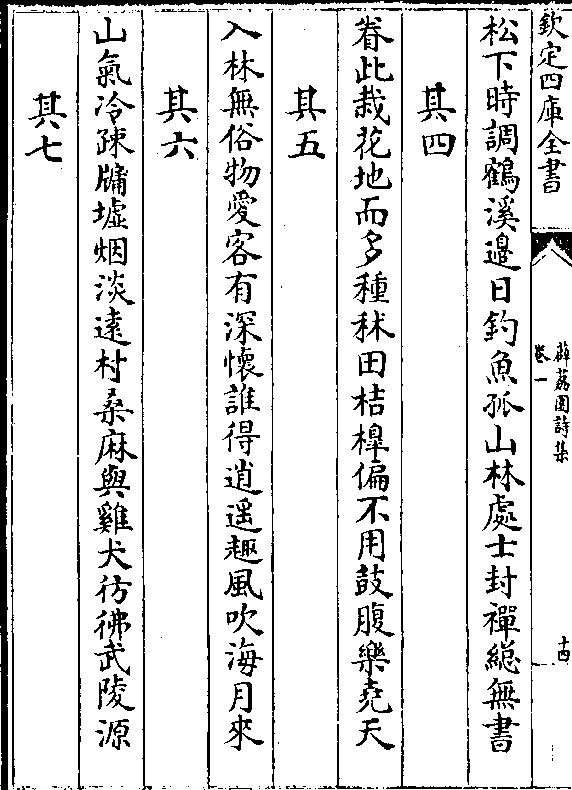 欽定四庫全書
薜荔園詩集
卷一
十四
松下時調鶴溪邊日釣魚孤山林處士封禪緫無書
其四
眷此栽花地而多種秫田桔槹偏不用鼓腹樂堯天
其五
入林無俗物愛客有深懷誰得逍遥趣風吹海月來
其六
山氣冷疎牗墟烟淡逺村桑麻與雞犬彷彿武陵源
其七